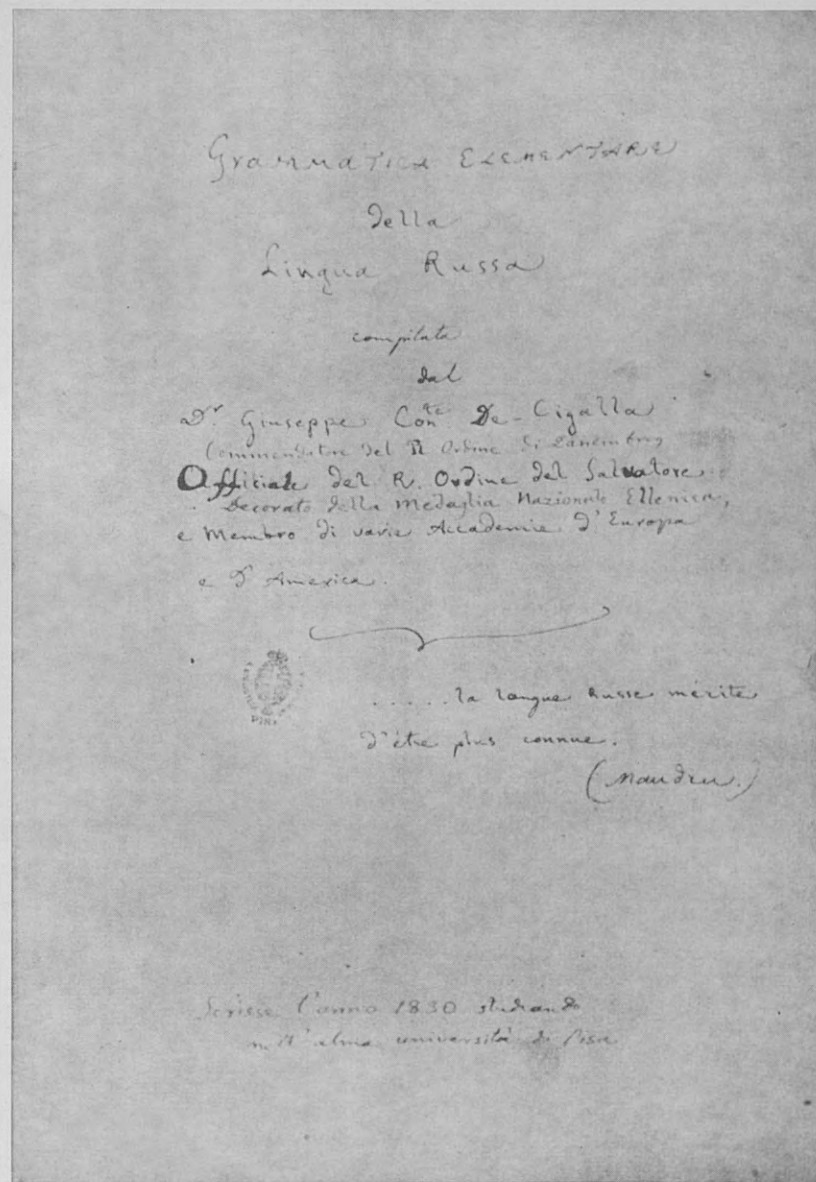 Grammatica Elementare
della
Lingua Russa
compilata
dal
Dr. Giuseppe Conte De-Cigalla
Commendatore del R Ordine di
Officiale del R. Ordine del Salvatore
Decorato della Medaglia Nazionale Ellenica,
e Membro di varie Accademie d'Europa
e d'America.
.....la langue Russe mérite
d'être plus connue.
(Maudru.)
Scrisse l'anno 1830 studiando
nell'alma università di Pisa